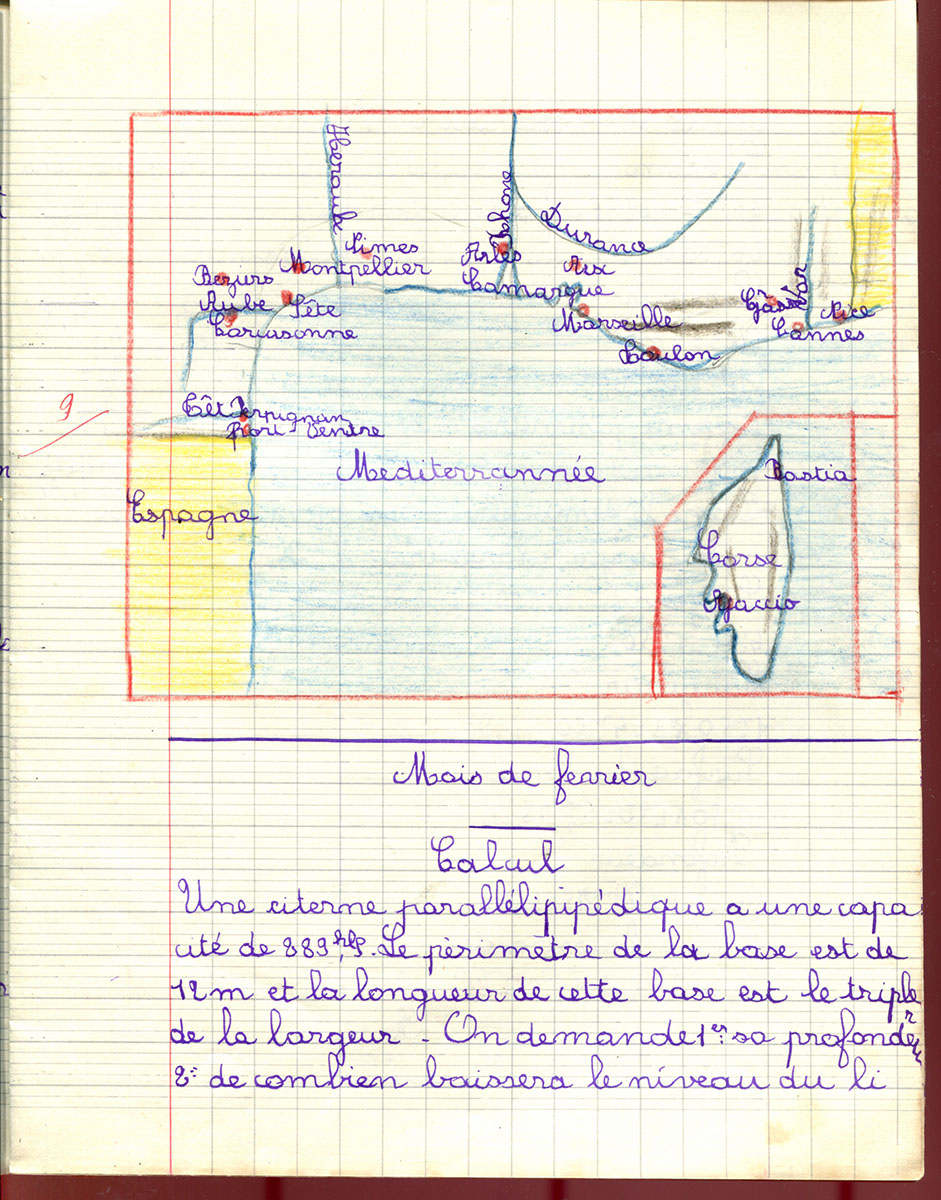 Herault
Rohone
Durance
Nimes
Montpellier
Arles
Aix
Beziers
Camargue
Var
Aube
Sête
Nice
Carcasonne
Marseille
Cannes
Toulon
Têt
Perpignan
Port-Ventre
Mediterrannée
Bastia
Espagne
Corse
Ajaccio
9
Mois de fevrier
Calcul
Une citerne parallélipipédique a une capa
cité de
Le périmètre de la base est de
12m et la longueur de cette base est le triple
de la largeur - On demande 1er: sa profondeur
2: de combien baissera le niveau du li